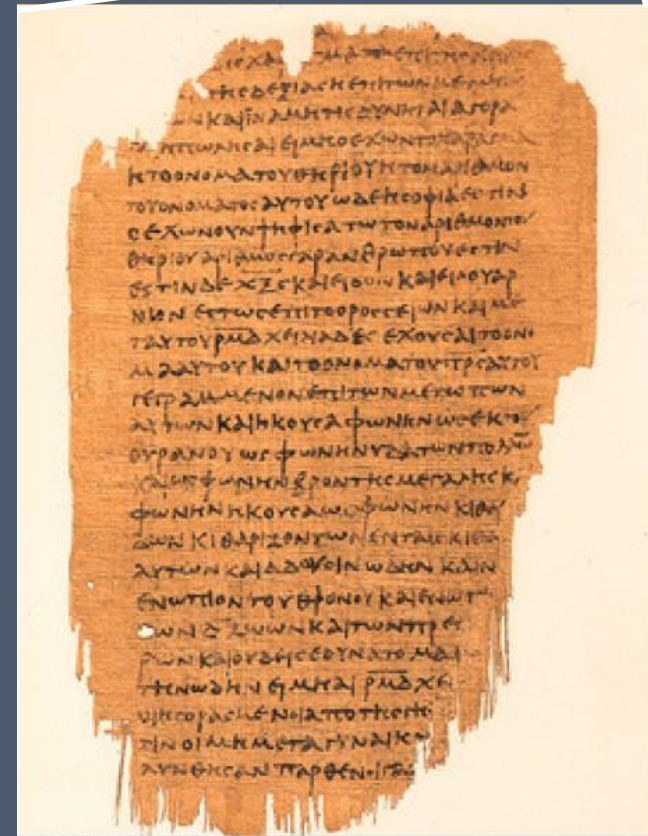 ΤΗϹΔΕΞΙΑϹΗΕΠΙΤΩΝΜΕΤΩ
ΩΝΚΑΙΪΝΑΜΗΤΙϹΔΥΝΗΤΑΙΑΓΟΡΑ
ΠΩΛΗϹΑΙΕΙΜΗΟΕΧΩΝΤΟΧΑΡΑΓΜΑ
ΗΤΟΟΝΟΜΑΤΟΥΘΗΡΙΟΥΗΤΟΝΑΡΙΘΜΟΝ
ΤΟΥΟΝΟΜΑΤΟϹΑΥΤΟΥΩΔΕΗϹΟΦΙΑΕϹΤΙΝ
ΟΕΧΩΝΟΥΝΨΗΦΙϹΑΤΩΤΟΝΑΡΙΘΜΟΝΤΟΥ
ΘΗΡΙΟΥΑΡΙΘΜΟϹΓΑΡΑΝΘΡΩΠΟΥΕϹΤΙΝ
ΕϹΤΙΝΔΕΧΞϚΚΑΙΕΙΔΟΝΚΑΙΕΙΔΟΥΑΡ
ΝΙΟΝΕϹΤΩϹΕΠΙΤΟΟΡΟϹϹΕΙΩΝΚΑΙΜΕ
ΤΑΥΤΟΥΡΜΔΧΕΙΛΙΑΔΕϹΕΧΟΥϹΑΙΤΟΟΝΟ
ΜΑΑΥΤΟΥΚΑΙΤΟΟΝΟΜΑΤΟΥΠΡϹΑΥΤΟΥ
ΓΕΓΡΑΜΜΕΝΟΝΕΠΙΤΩΝΜΕΤΩΠΩΝ
ΑΥΤΩΝΚΑΙΗΚΟΥϹΑΦΩΝΗΝΩϹΕΚΤΟΥ
ΟΥΡΑΝΟΥΩϹΦΩΝΗΝΫΔΑΤΩΝΠΟΛΛΩΝ
ΚΑΙΩϹΦΩΝΗΝΒΡΟΝΤΗϹΜΕΓΑΛΗϹΚ
ΦΩΝΗΝΗΚΟΥϹΑΩϹΦΩΝΗΝΚΙΘΑ
ΔΩΝΚΙΘΑΡΙΖΟΝΤΩΝΕΝΤΑΙϹΚΙΘΑ
ΑΥΤΩΝΚΑΙΑΔΟΥϹΙΝΩΔΗΝΚΑΙΝ
ΕΝΩΠΙΟΝΤΟΥΘΡΟΝΟΥΚΑΙΕΝΩΠΙ
ΤΩΝΔΖΩΩΝΚΑΙΤΩΝΠΡΕϹ
ΡΩΝΚΑΙΟΥΔΕΙϹΕΔΥΝΑΤΟΜΑ
ΤΗΝΩΔΗΝΕΙΜΗΑΙΡΜΔΧΕΙ
ΟΙΗΓΟΡΑϹΜΕΝΟΙΑΠΟΤΗϹΓΗϹ
ΤΙΝΟΙΜΗΜΕΤΑΓΥΝΑΙΚΩ
ΛΥΝΘΗϹΑΝΠΑΡΘΕΝΟΙ